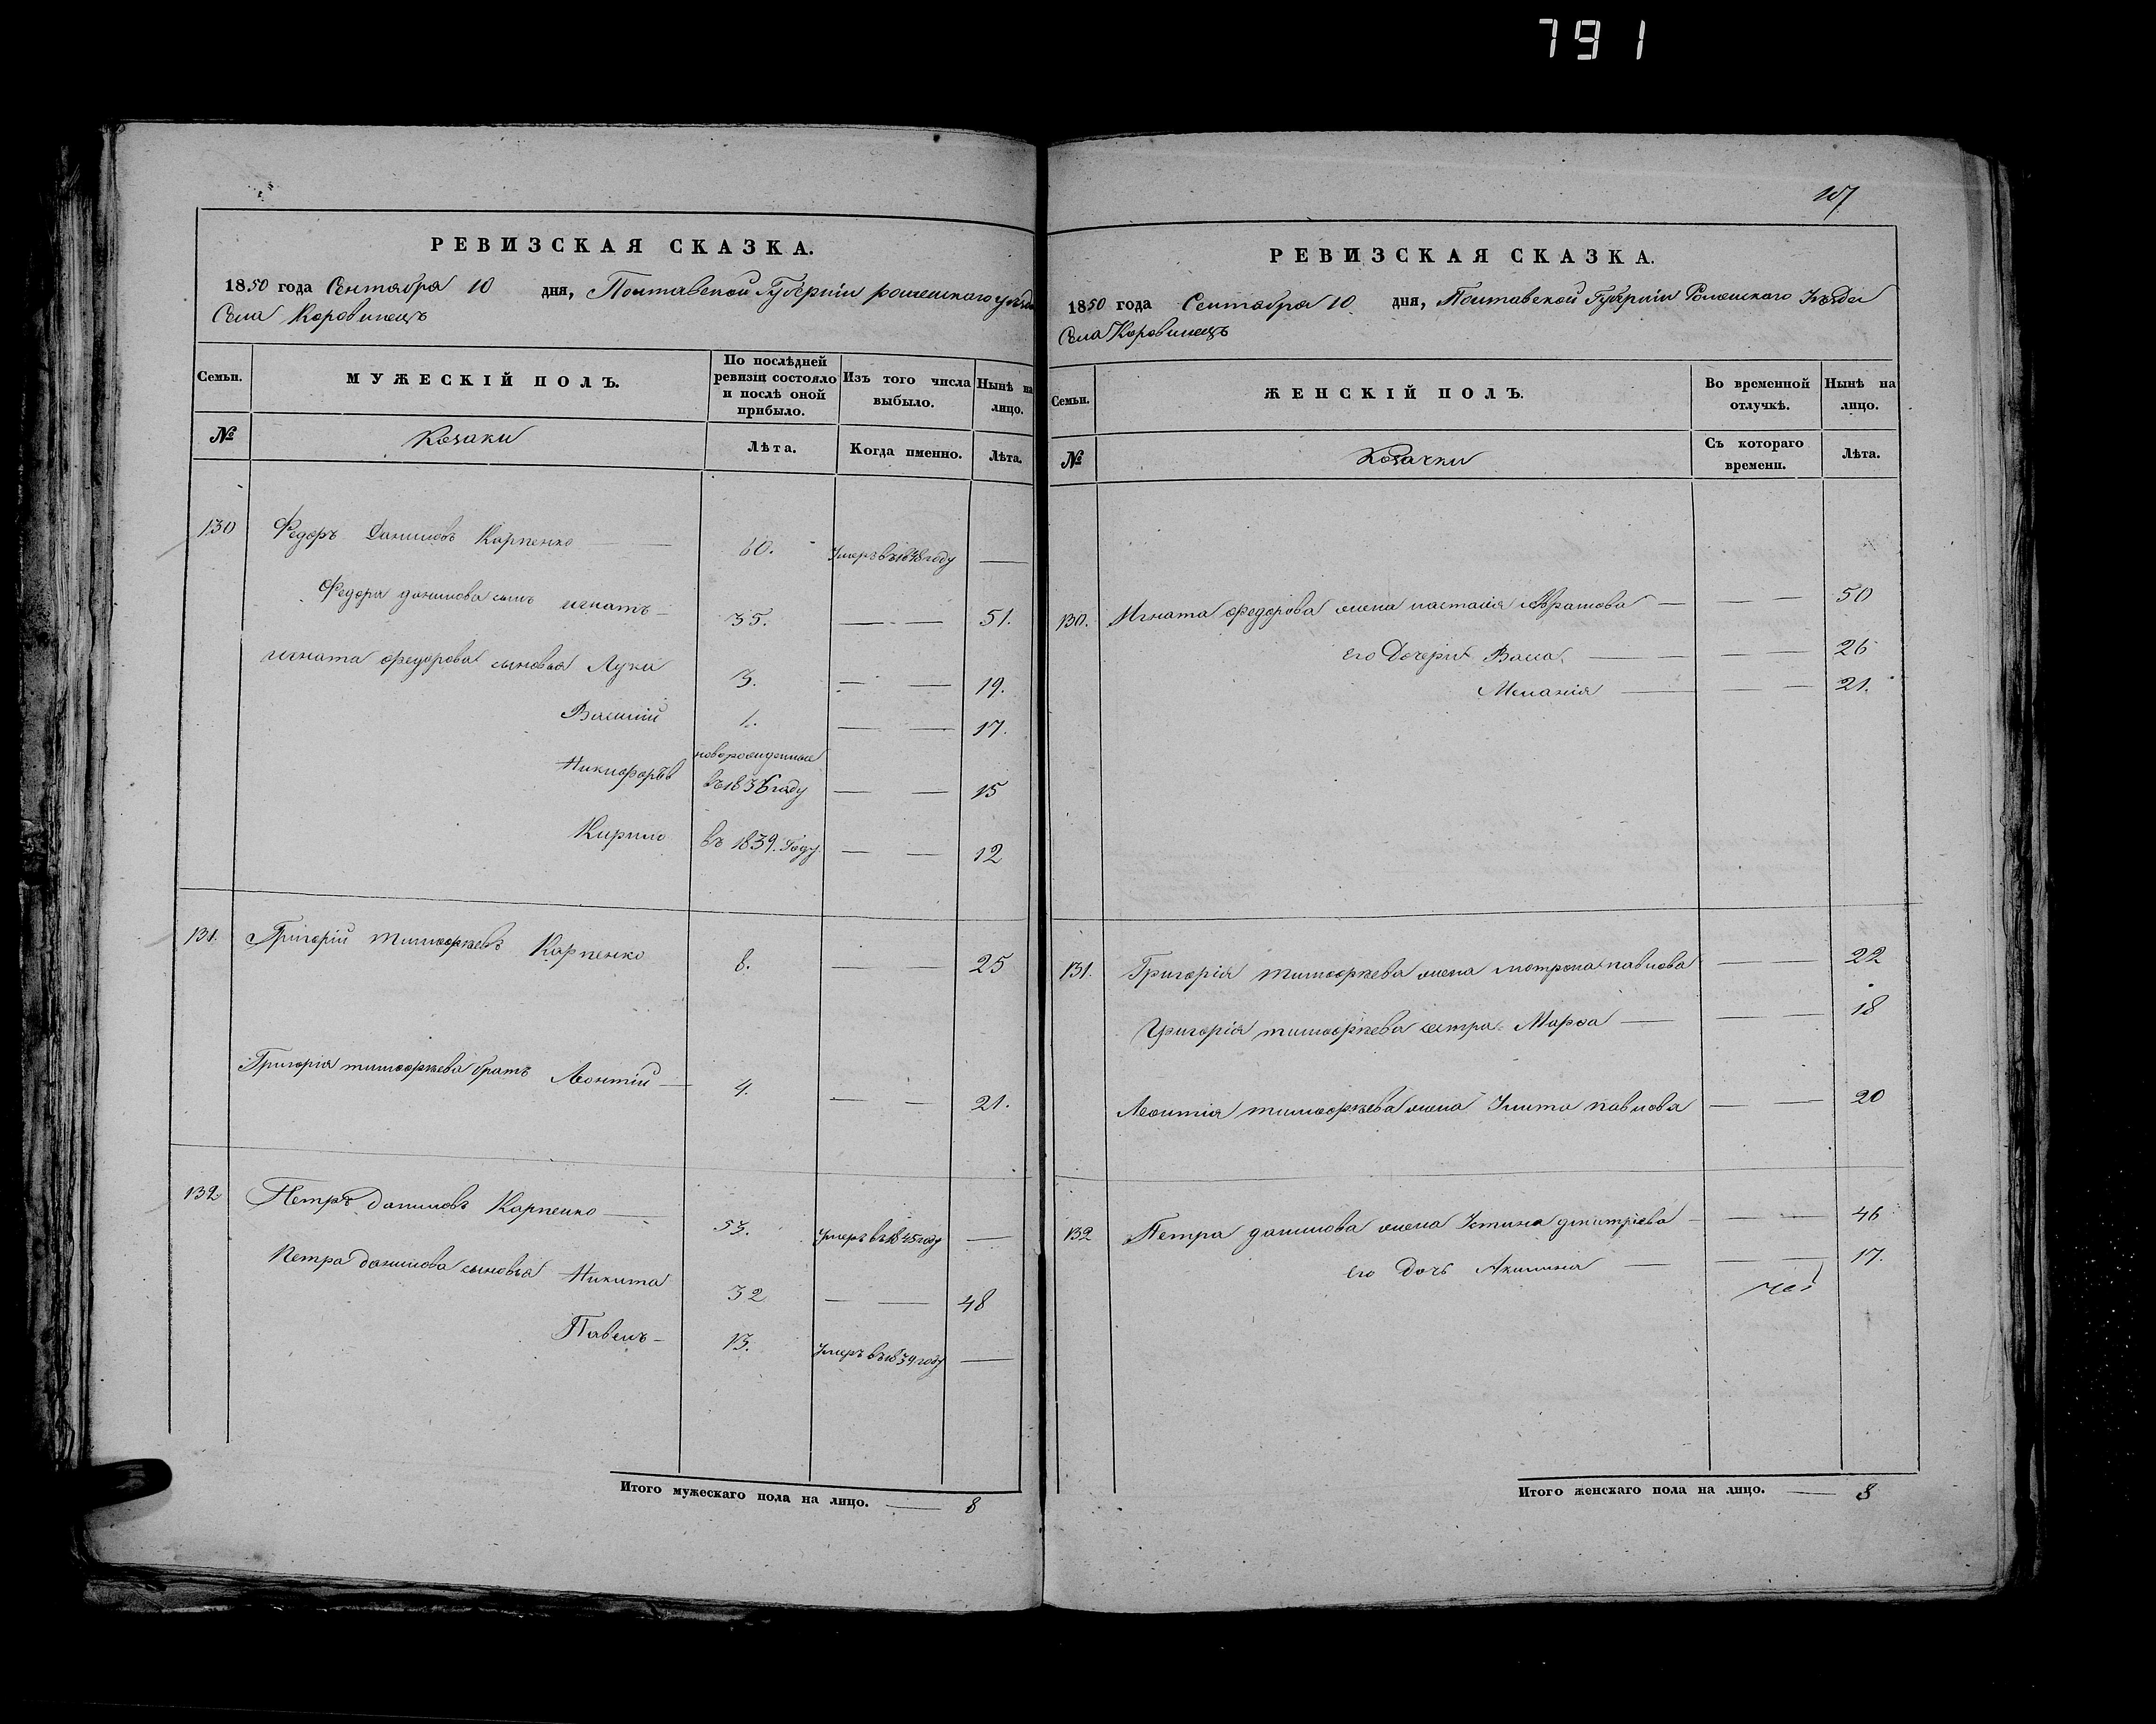 791
107
РЕВИЗСКАЯ СКАЗКА.
1850 года Сентября 10 дня, Полтавской Губерніи роменского уезда
Села Коровинецъ
Семьи.
МУЖЕСКІЙ ПОЛЪ.
По послѣдней ревизіи состояло и послѣ оной прибыло.
Изъ того числа выбыло.
Нынѣ на лицо.
№
Козаки
Лѣта.
Когда именно.
Лѣта.
130 Федоръ Даниловъ Карпенко — — 60. Умеръ въ 1848 году —
Федора данилова сынъ игнатъ — 35. — — 51.
игната федорова сыновья Лука 3. — — 19.
Василій 1. — — 17.
Никифоръ новорожденные въ 1836 году — — 15
Кирило въ 1839. Году. — — 12
131. Григорій тимофеевъ Карпенко 8. — — 25
Григорія тимофеева братъ Леонтій — 4. — — 21.
132 Петръ даниловъ Карпенко — 53. Умеръ въ 1845 году —
Петра данилова сыновья Никита 32 — — 48
Павелъ — 13. Умеръ въ 1834 году —
Итого мужескаго пола на лицо. — 8
РЕВИЗСКАЯ СКАЗКА.
1850 года Сентября 10 дня, Полтавской Губерніи Роменского Уезда
Села Коровинецъ
Семьи.
ЖЕНСКІЙ ПОЛЪ.
Во временной отлучкѣ.
Нынѣ на лицо.
№
Козачки
Съ котораго времени.
Лѣта.
130. Игната федорова жена настасія Абрамова — — — 50
его Дочери Васса — — — — 26
Меланія — — — 21.
131. Григорія тимофеева жена мотрона павлова — — 22
Григорія тимофеева сестра Марфа — — — 18
Леонтія тимофеева жена Улита павлова — — 20
132 Петра данилова жена Устина дмитріева — — — 46
его Дочь Акилина — — — 17.
Итого женскаго пола на лицо. — 8